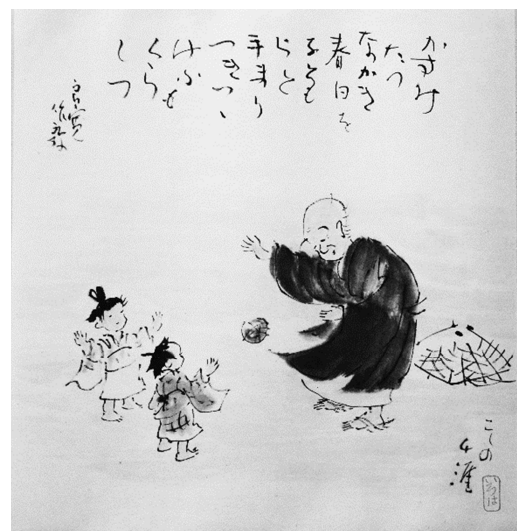 かすみ
たつ
なかき
春日を
子とも
らと
手まり
つきつゝ
けふも
くら
しつ
良寛
こしの
千涯
いろは